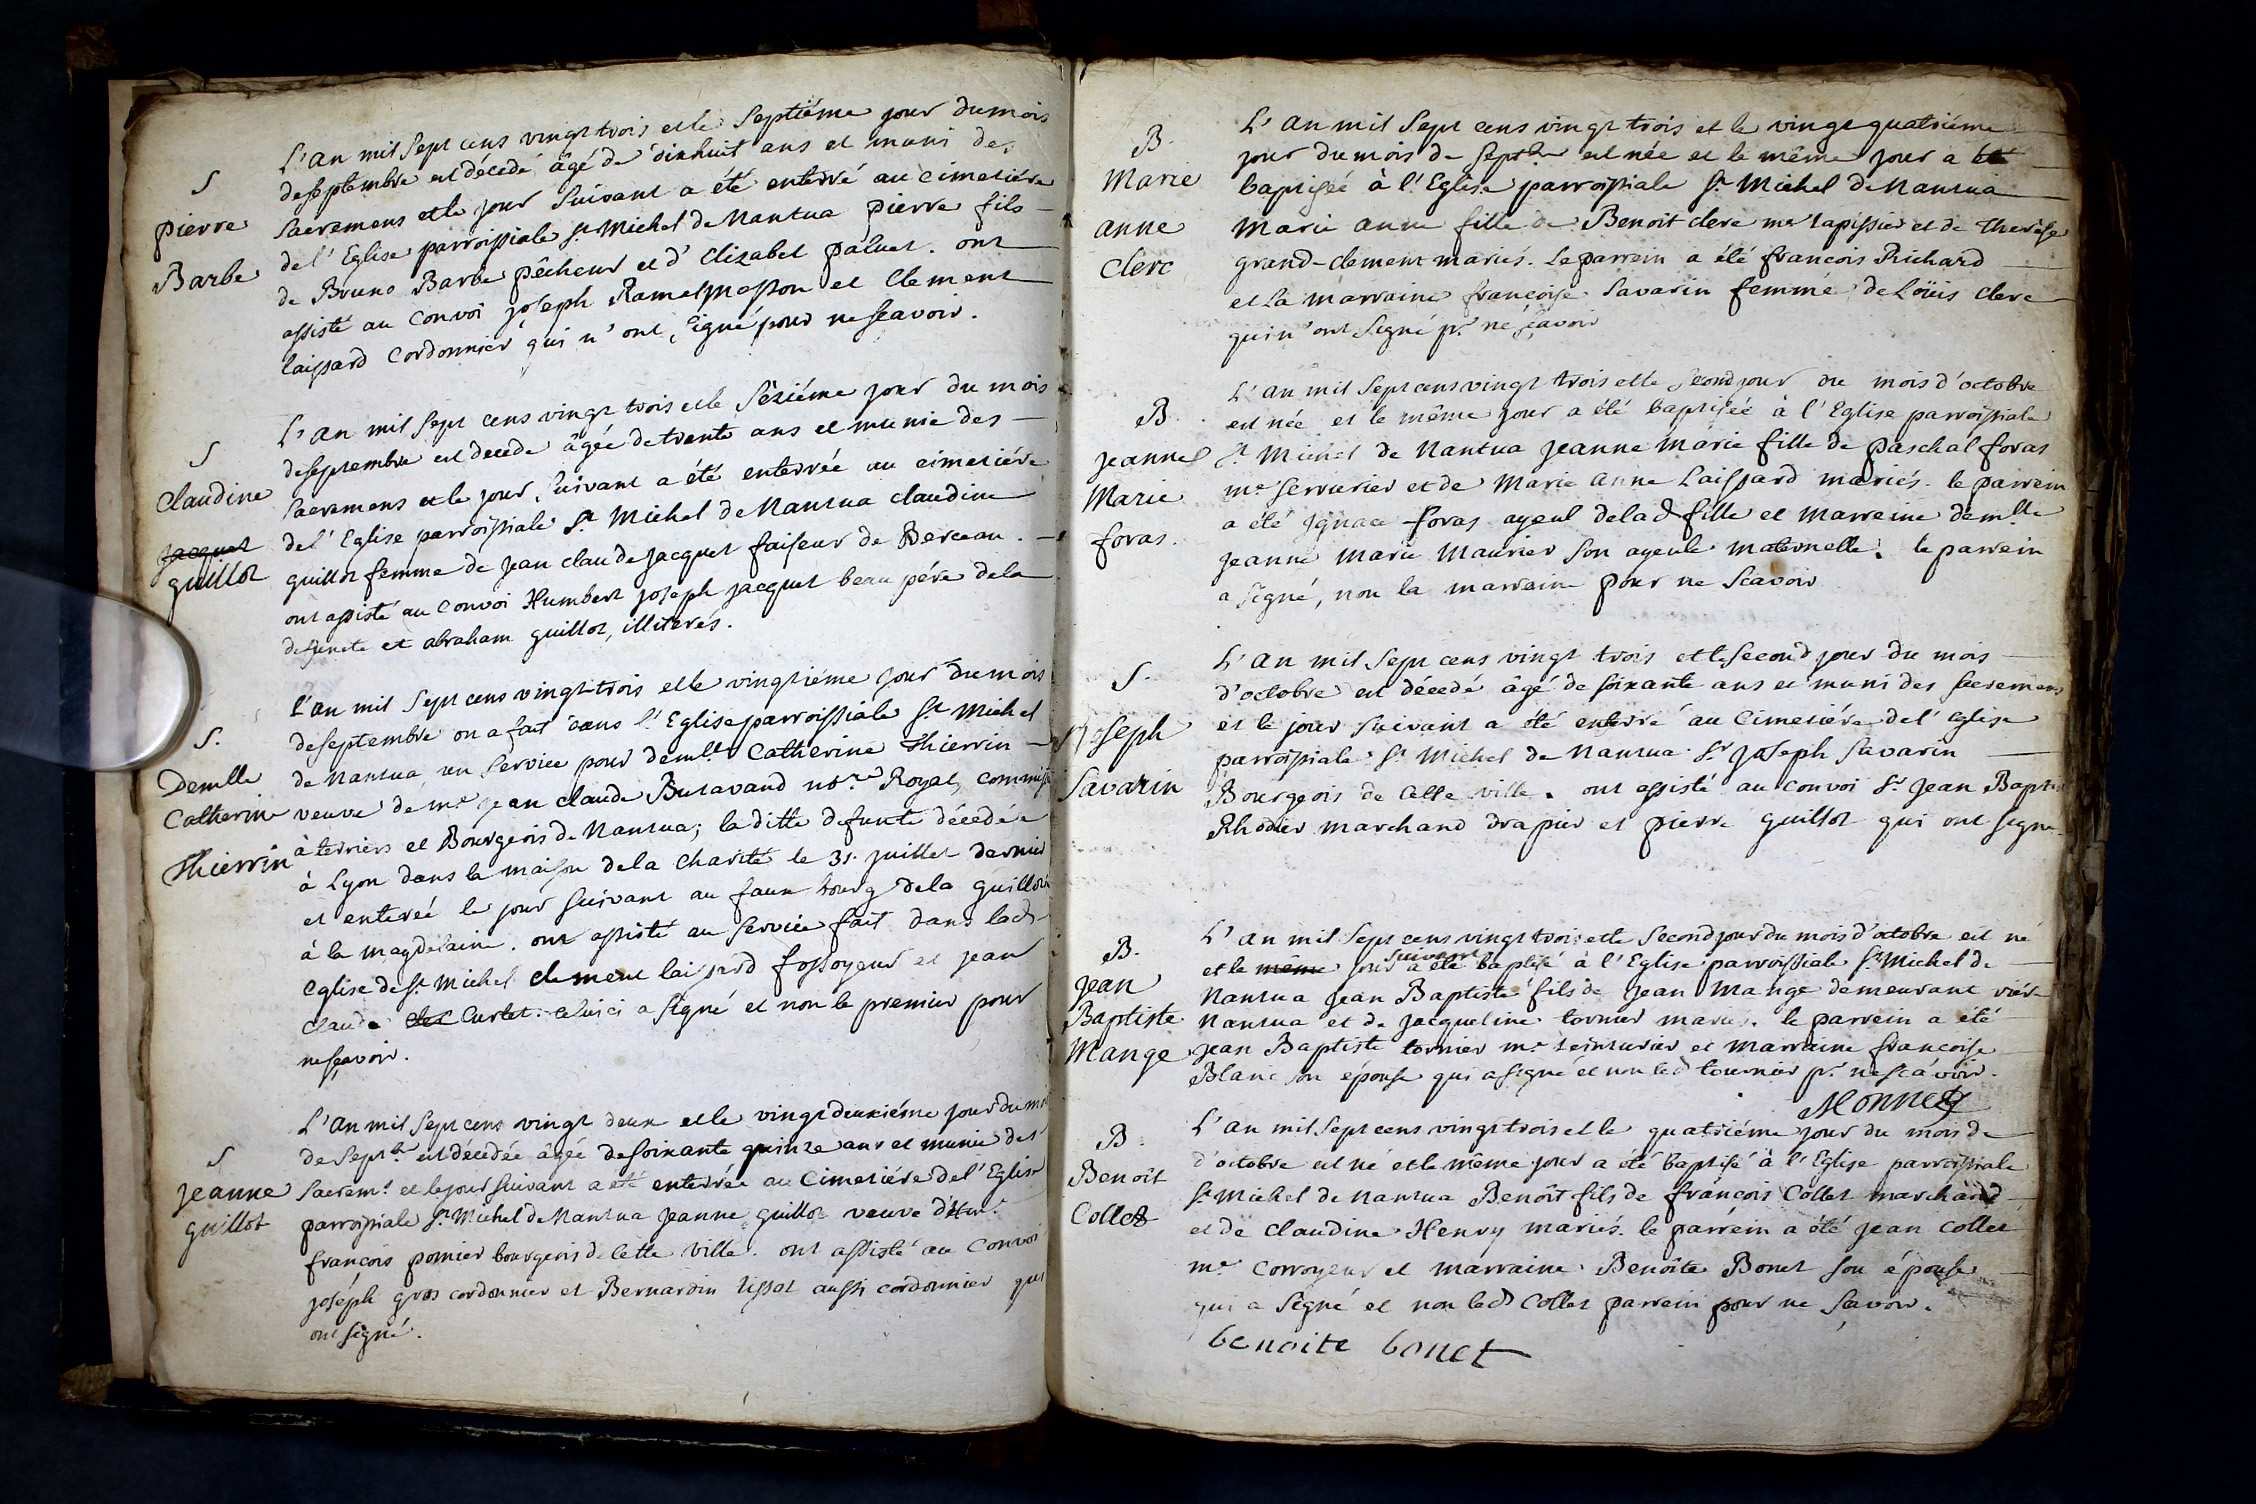 S
Pierre
Barbe
L'an mil sept cens vingt trois et le septiéme jour du mois
de septembre est décedé âgé de dixhuit ans et muni des
sacremens et le jour suivant a été enterré au cimetiére
de l'Eglise parroissiale St Michel de Nantua pierre fils
de Bruno Barbe pêcheur et d'Elizabet paluet. ont
assisté au convoi joseph Ramel masson et Clement
laissard Cordonnier qui n'ont signé pour ne sçavoir.
S
Claudine
jacquet
guillot
L'an mil sept cens vingt trois et le séziéme jour du mois
de septembre est decedé âgée de trente ans et munie des
sacremens et le jour suivant a été enterrée au cimetiére
de l'Eglise parroissiale St Michel de Nantua claudine
guillot femme de jean claude jacquet faiseur de Berceau.
ont assisté au convoi Humbert joseph jacquet beau pére de la
defunte et abraham guillot, illiterés.
S.
Demlle
Catherine
Thierrin
L'an mil sept cens vingt-trois et le vingtiéme jour du mois
de septembre on a fait dans l'Eglise parroissiale St Michel
de Nantua un service pour demlle Catherine Thierrin
veuve de me jean claude Butavand notre Royal, commiss
à terriers et Bourgeois de Nantua; la ditte defunte décedée
à Lyon dans la maison de la charité le 31. juillet dernier
et enterée le jour suivant au faux bourg de la guillot
à la magdelaine. ont assisté au service fait dans lad
eglise de St Michel clement laissard fossoyeur et jean
claude Curtet. celui ci a signé et non le premier pour
ne sçavoir.
S
jeanne
guillot
L'an mil sept cens vingt deux et le vingtdeuxiéme jour du m
de septbre est décedée âgée de soixante quinze ans et munie des
sacremt et le jour suivant a eté enterrée au Cimetiére de l'Eglise
parroissiale St Michel de Nantua jeanne guillot veuve d'
françois pomier bourgeois de cette ville. ont assisté au convoi
joséph gros cordonnier et Bernardin Ussot aussi cordonnier qui
ont signé.
B.
Marie
anne
Clerc
L'an mil sept cens vingt trois et le vingt quatriéme
jour du mois de septbre est née et le même jour a été
baptisée à l'Eglise parroissiale St Michel de Nantua
Marie anne fille de Benoit clerc me tapissier et de Therèse
grand-clement mariés. Le parrein a été francois Richard
et la marraine françoise Savarin femme de Loüis clerc
qui n'ont signé pr ne sçavoir
B.
jeanne
Marie
foras.
L'an mil sept cens vingt trois et le second jour du mois d'octobre
est née et le même jour a été baptisée à l'Eglise parroissiale
St Michel de Nantua jeanne Marie fille de paschal foras
me serrurier et de Marie anne Laissard mariés. le parrein
a été jgnace foras ayeul de lad fille et marreine demlle
jeanne marie Maurier son ayeule maternelle. le parrein
a signé, non la marreine pour ne scavoir
S.
joseph
Savarin
L'an mil sept cens vingt trois et le second jour du mois
d'octobre est décedé âgé de soixante ans et muni des sacremens
et le jour suivant a été enterré au Cimetiére de l'eglise
parroissiale St Michel de Nantua Sr joseph Savarin
Bourgeois de cette ville. ont assisté au convoi Sr jean Baptis
Rhodier marchand drapier et pierre guillot qui ont signé.
B.
jean
Baptiste
Mange
L'an mil sept cens vingt trois et le second jour du mois d'octobre est né
et le même jour suivant a été baptisé à l'Eglise parroissiale St Michel de
Nantua jean Baptiste fils de jean Mange demeurant viére
Nantua et de jacqueline tornier mariés. le parrein a été
jean Baptiste tornier me teinturier et marraine francoise
Blanc son épouse qui a signé et non led tournier pr ne scavoir.
Monnet
B.
Benoît
Collet
L'an mil sept cens vingt trois et le quatriéme jour du mois de
d'octobre est né et le même jour a été baptisé à l'Eglise parroissiale
St Michel de Nantua Benoît fils de françois Collet marchand
et de claudine Henry mariés. le parrein a été jean collet
me corroyeur et marraine Benoîte Bonet son épouse
qui a signé et non led Collet parrein pour ne sçavoir.
benoite bonet